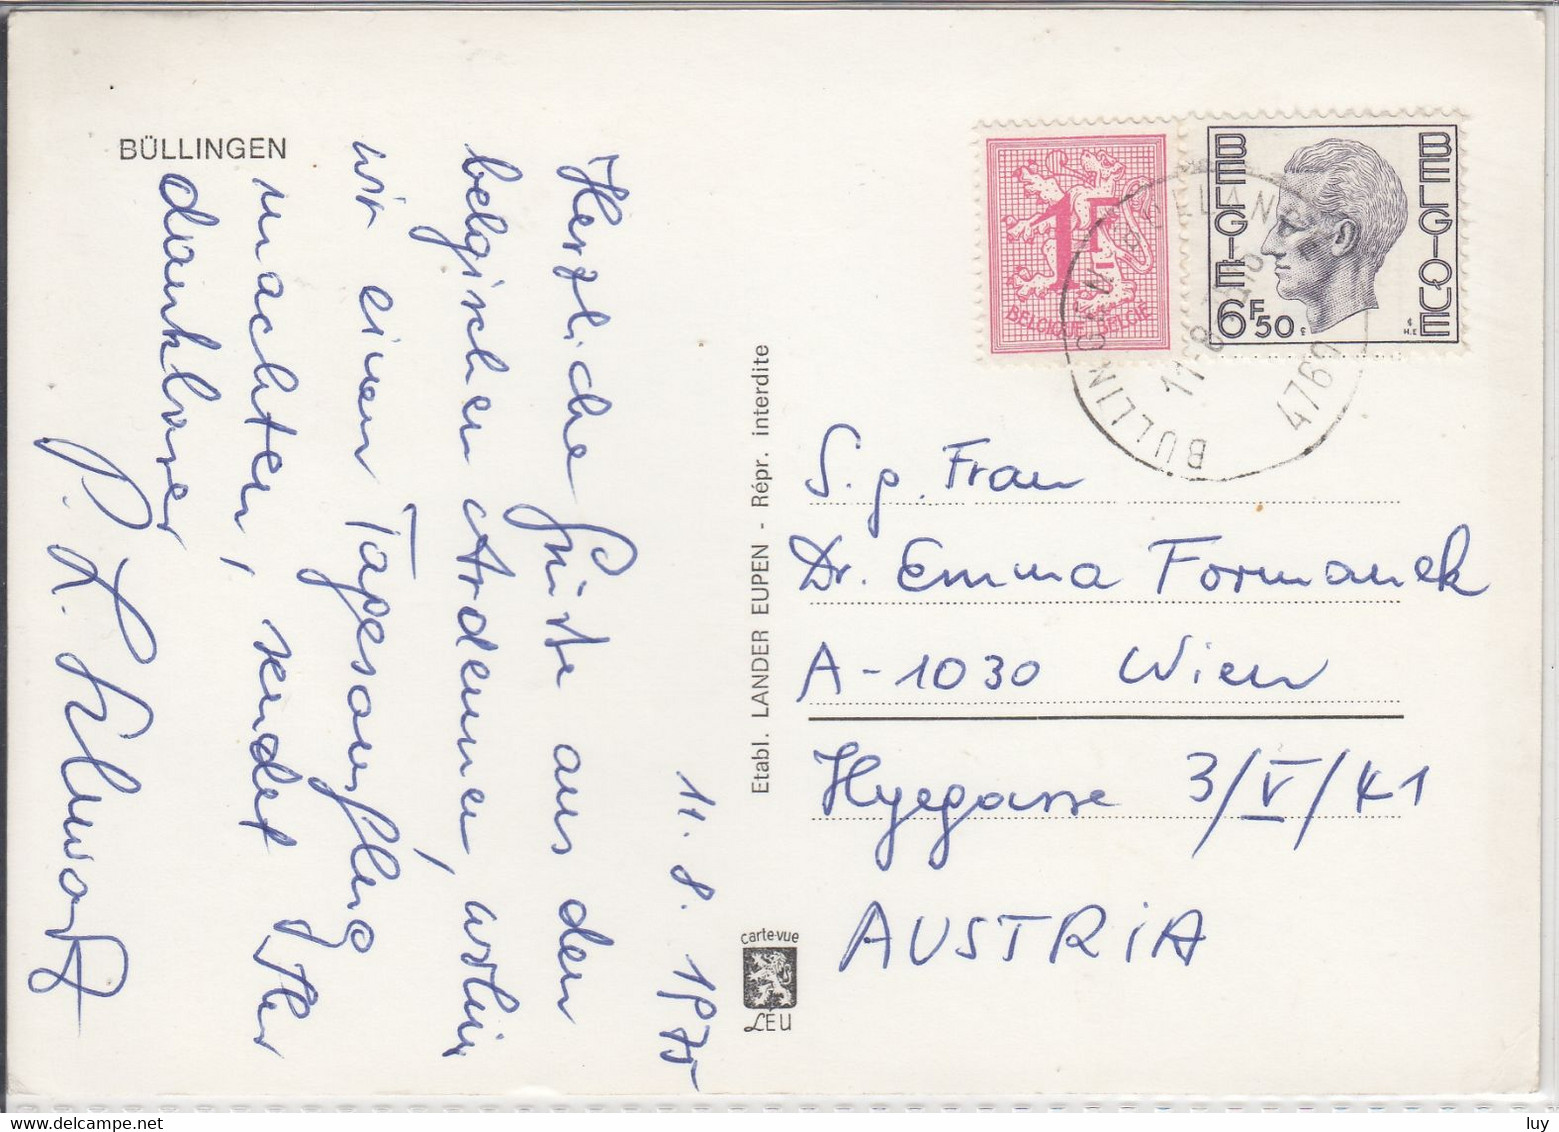 BÜLLINGEN
11. 8. 1975
Herzliche Grüße aus den
belgischen Ardennen, wohin
wir einen Tagesausflug
machten, sendet Ihr
dankbarer
P. K. Schwarz
Etabl. LANDER EUPEN - Répr. interdite
carte-vue
LEU
1F
BELGIQUE BELGIË
BELGIE
BELGIQUE
6F50
BULLINGEN
11-8
4769
S.g. Frau
Dr. Emma Formanek
A-1030 Wien
Hyegasse 3/V/41
AUSTRIA
www.delcampe.net
luy